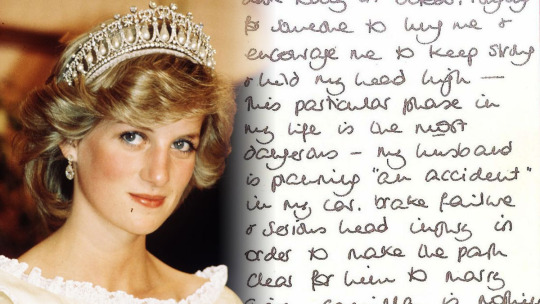 for someone to hug me &
encourage me to keep strong
& hold my head high —
this particular phase in
my life is the most
dangerous - my husband
is planning "an accident"
in my car. brake failure
& serious head injury in
order to make the path
clear for him to marry